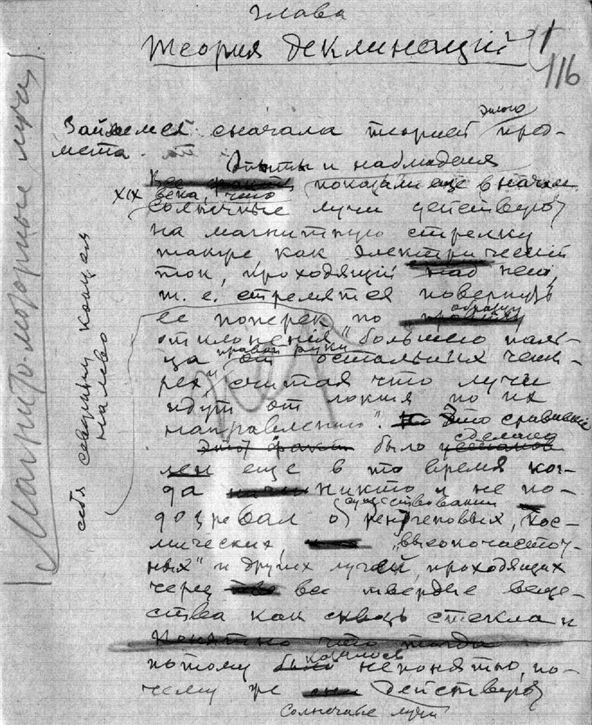 Глава
Теория деклинаций
1
116
Займемся сначала теорией этого пред-
мета.
Опыты и наблюдения
показали еще в начале
XIX века, что
солнечные лучи действуют
на магнитную стрелку
также как электрический
ток, проходящий над ней,
т. е. стремятся повернуть
ее поперек по образцу
отклонения "большего паль-
ца правой руки от остальных четы-
рех", считая что лучи
идут от локтя по их
направлению". Это сравнение
было сделано
еще в то время ког-
да никто и не по-
дозревал о существовании рентгеновых, кос-
мических, "высокочастот-
ных" и других лучей, проходящих
через все твердые веще-
ства как сквозь стекла и
потому казалось непонятно, по-
чему же действуют
солнечные лучи
Магнито-моторные лучи
себя северным концем
налево